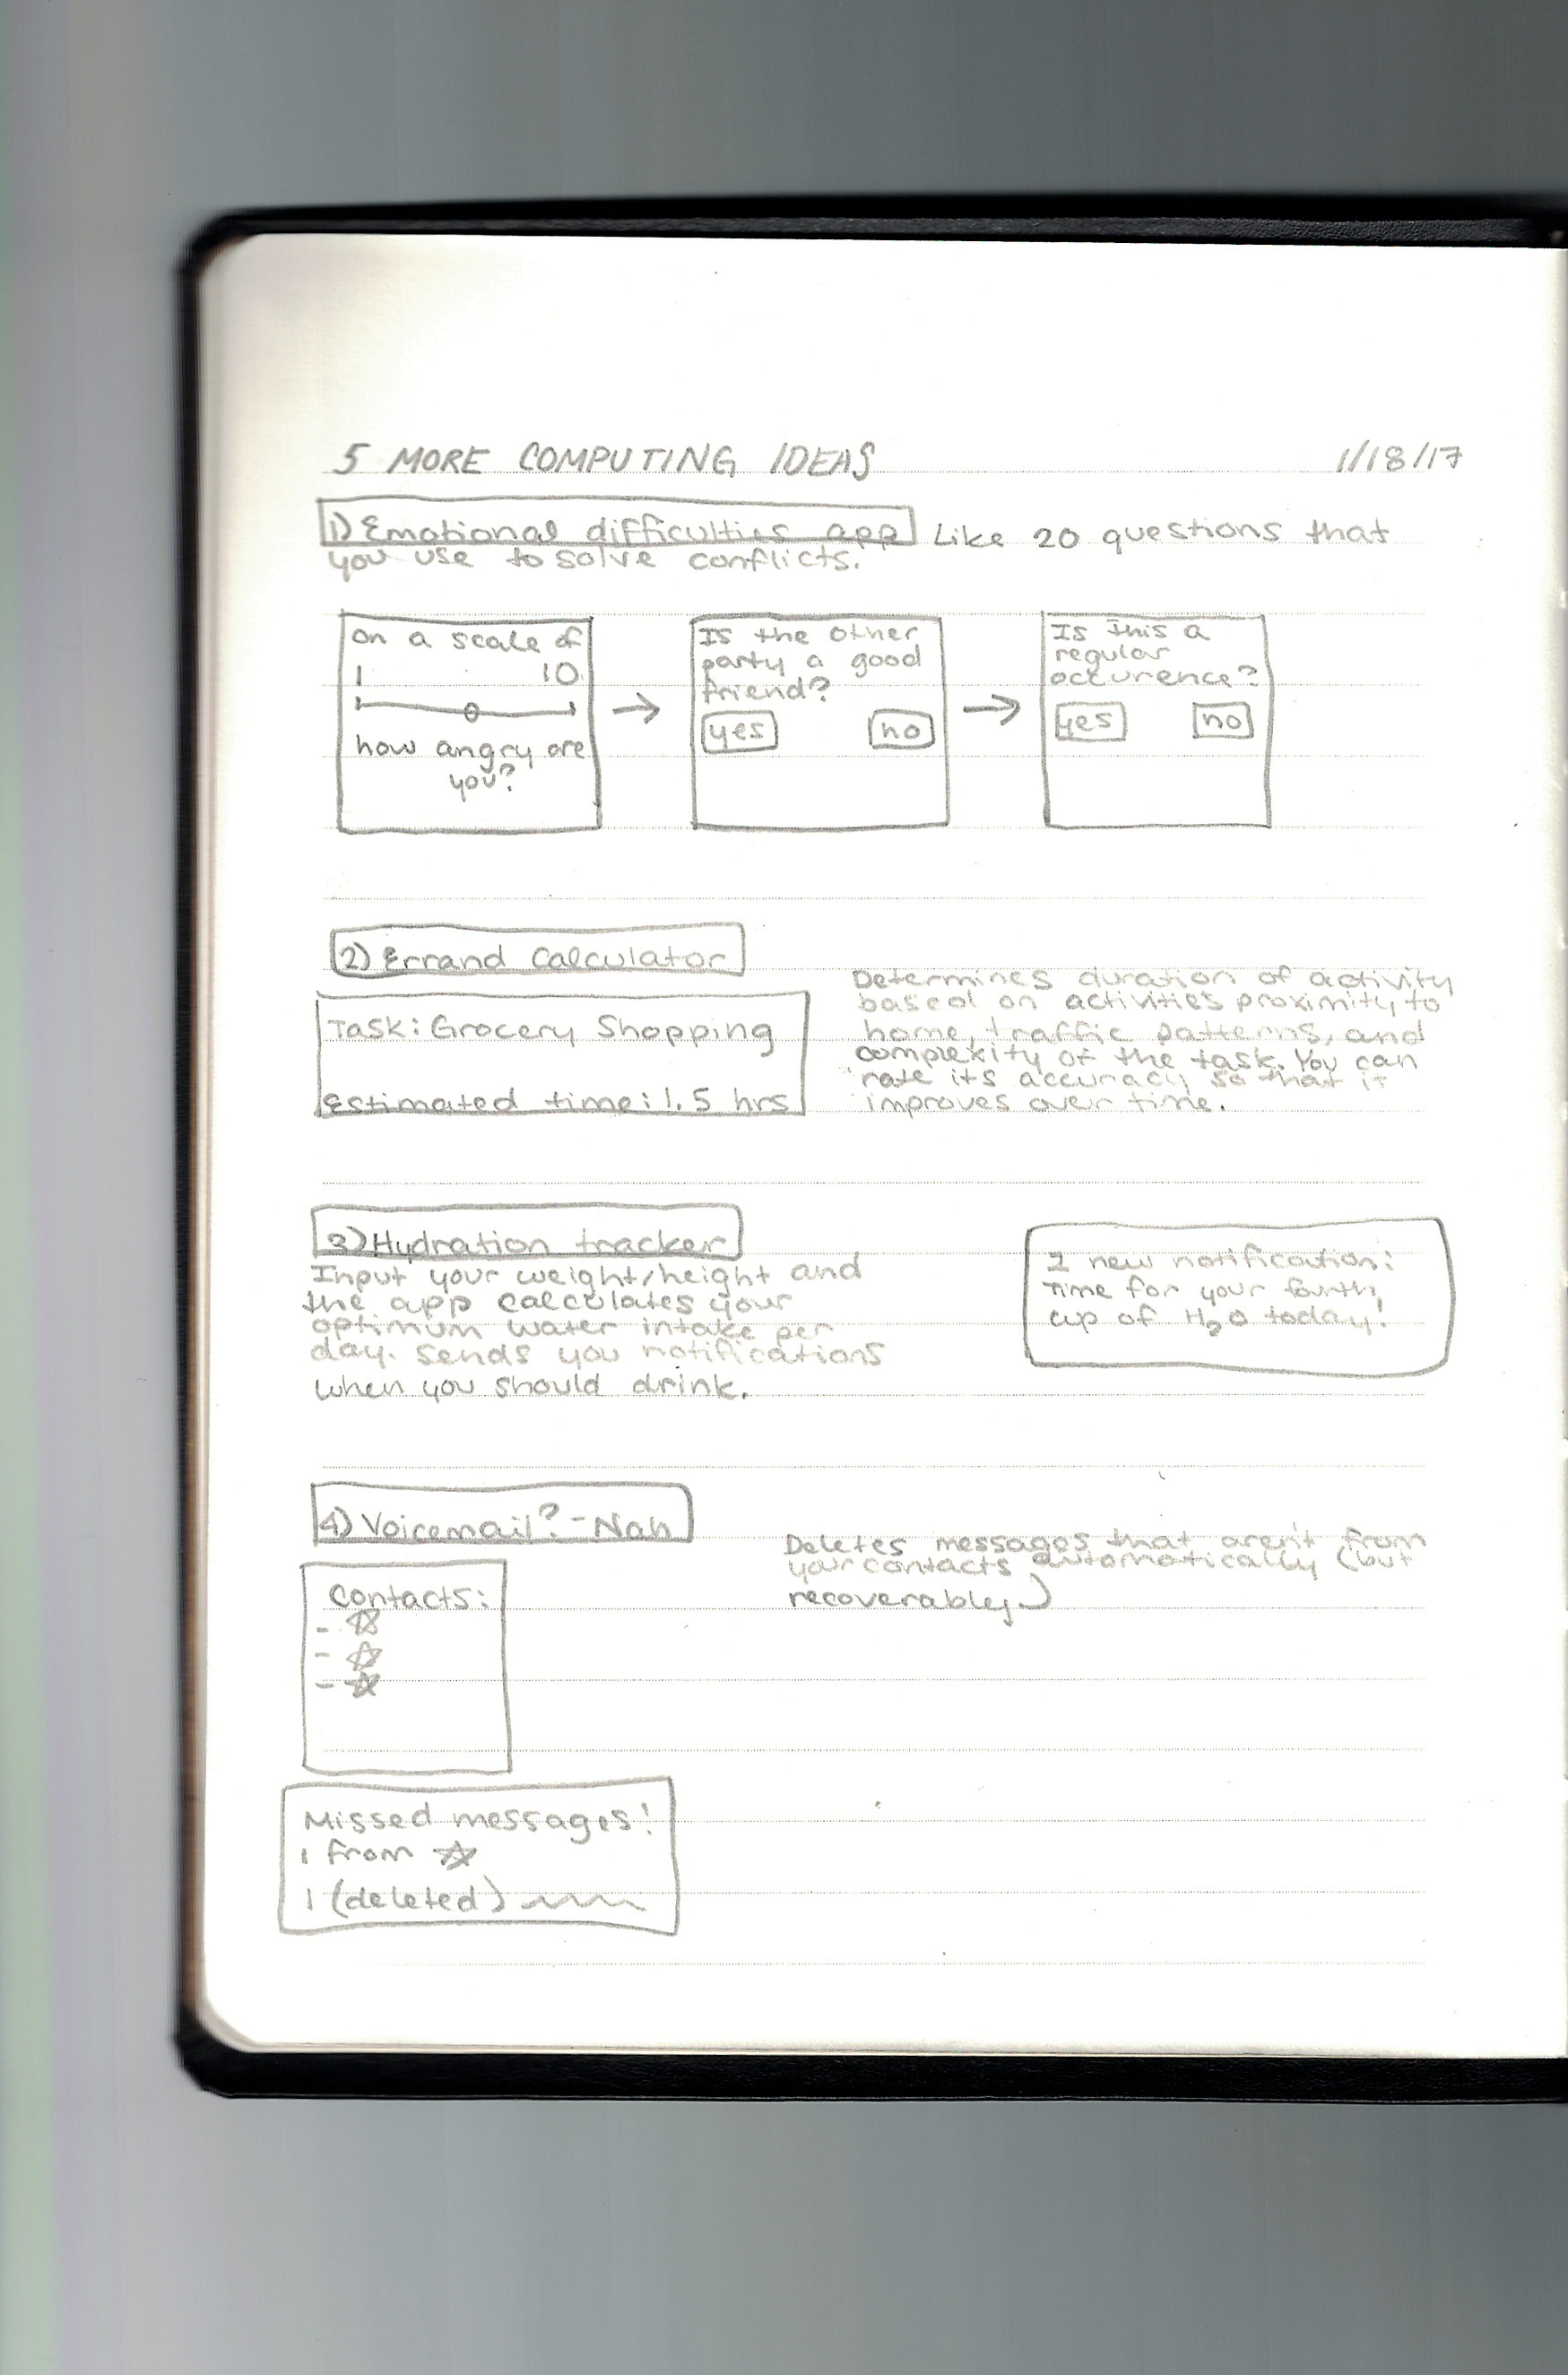 5 MORE COMPUTING IDEAS 1/18/17
1) Emotional difficulties app Like 20 questions that
you use to solve conflicts.
on a scale of
1 10
how angry are
you?
Is the other
party a good
friend?
yes no
Is this a
regular
occurence?
yes no
2) Errand Calculator
Task: Grocery Shopping
Estimated time: 1.5 hrs
Determines duration of activity
based on activities proximity to
home, traffic patterns, and
complexity of the task. You can
rate its accuracy so that it
improves over time.
3) Hydration tracker
Input your weight/height and
the app calculates your
optimum water intake per
day. Sends you notifications
when you should drink.
1 new notification:
Time for your fourth
cup of H₂O today!
4) Voicemail? - Nah
Deletes messages that aren't from
your contacts automatically (but
recoverably)
Contacts:
- ☆
- ☆
- ☆
Missed messages!
1 from ☆
1 (deleted)